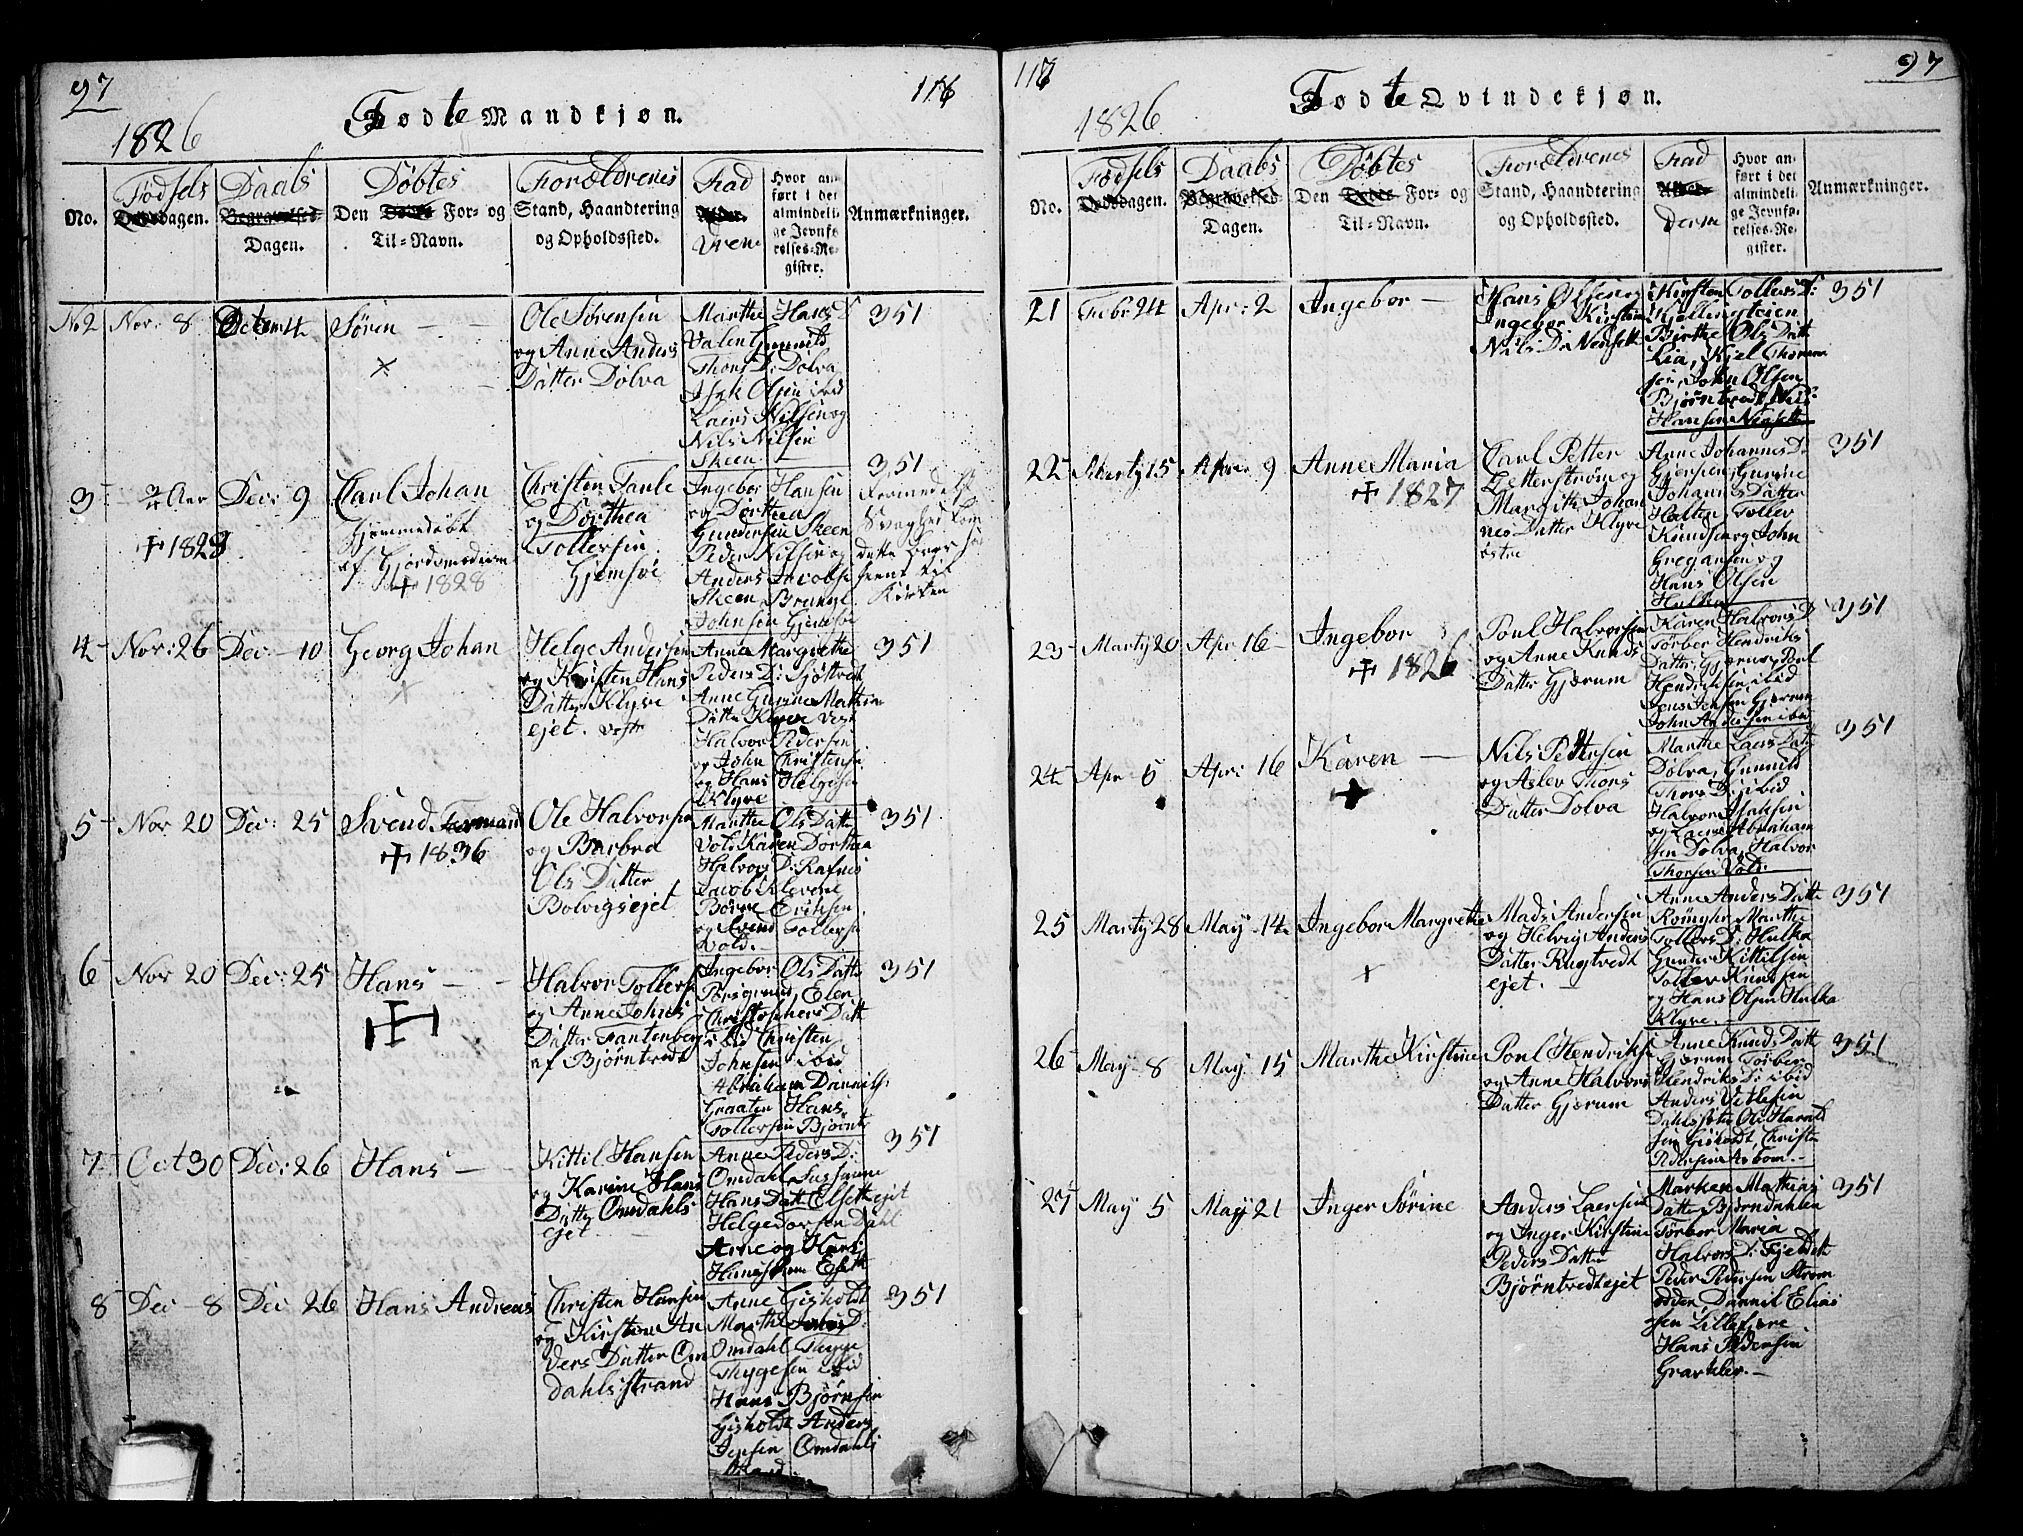 97
116
Fødte Mandkjøn.
1826
No.
Födsels
Døds dagen.
Daabs
Begravelses
Dagen.
Døbtes
Den Dødes For- og
Til-Navn.
Forældrenes
Stand, Haandtering
og Opholdssted.
Fad
Alder.
drene
Hvor an-
ført i det
almindeli-
ge Jevnfø-
relses-Re-
gister.
Anmærkninger.
No 2
Nov: 8
Decbm 4
Sören
Ole Sörensen
og Anne Anders
Datter Dölva
Marthe Hans D
Valen Gunnild
Thors D: Dölva
Isak Olsen ibid
Laers Nilsen og
Nils Nilsen
Skeen
351
3
Dec: 9
+ 1828
Carl Johan
Hjemmedöbt
af Gjordemoderen
+ 1828
Christen Taule
og Dorthea
Tollefsen
Gjemsöe
Ingebor Hansen
og Dorthea
Gundersen Skeen
Peder Nilsen og
Anders Jacobse
Skeen
Johnsen Gjemsöe
351
Formedelst
Svaghed kom
dette Barn saa
seent til
Kirken
4
Nov: 26
Dec: 10
Georg Johan
Helge Andersen
og Kirsten Hans
Datter Klyve
ejet. vestr
Anne Margrethe
Peders D: Sjöttvedt
Anne Gurine Mathia
Datter Klyve vest
Halvor Pedersen
og John Christense
og Hans Helgesen
Klyve
351
5
Nov 20
Dec: 25
Svend
+ 1836
Ole Halvorsen
og Barbra
Ols Datter
Bolvigsejet
Marthe Ols Datte
Vold Karen Dorthea
Halvors D: Rafnes
Jacob Klevene
Börre Eriksen
og Svend Tollefse
Vold.
351
6
Nov 20
Dec: 25
Hans
Halvor Tollefs
og Anne Johns
Datter Fantenberg
af Björntvedt
Ingebor Ols Datte
Porsgrund, Elen
Christophers Datt
ibid Christen
Johnsen ibid
Abraham Danniels:
Graaten Hans
Tollefsen Björntv
351
7
Oct 30
Dec: 26
Hans
Kittil Hansen
og Karine Hans
Datter Omdahls
ejet
Anne Peders D:
Omdahl Sussanne
Hans Datt
Helge
Arne og Hans
351
8
Dec 8
Dec 26
Hans Andreas
Christen Hansen
og Kirsten An
ders Datter Om
dahlsstrand
Anne Gisholdt
Marthe D:
Omdahl Thyge
Thygesen ibid
Hans Björnsen
Gisholdt Anders
Jensen Omdahls
strand
351
117
97
Fødte Qvindekjøn.
1826
No.
Fødsels
Døds dagen.
Daabs
Begravelses
Dagen.
Døbtes
Den Dødes For- og
Til-Navn.
Forældrenes
Stand, Haandtering
og Opholdssted.
Fad
Alder
derne
Hvor an-
ført i det
almindeli-
ge Jevnfø-
relses-Re-
gister.
Anmærkninger.
21
Febr: 24
Apr: 2
Ingebor
Hans Olsen og
Ingebor Kirstine
Nils D: Nenset
Kirsten Tollefs D:
Kjellingteien
Birthe Ols Datt
Lia, Kjel Thorm
sen, John Olsen
Björntvedt, Nils
Hansen Nenset
351
22
Marty 15
9
Anne Maria
+ 1827
Carl Petter
Zetterström og
Margith Johan
nes Datter Klyve
østre
Anne Johannes D:
Gjersen, Gurine
Johannes Datter
Tollev
Knudsen og John
Gregarsen og
Hans Olsen
Hulka
351
23
Marty 20
Apr 16
Ingebor
+ 1826
Poul Halvorsen
og Anne Knuds
Datter Gjerum
Karen Halvors D:
Torber Hendriks
Datter Gjerum, Poul
Hendriksen ibid
Jens Jensen Gjerum
John Andersen ibid
351
24
Apr 5
Apr: 16
Karen
Nils Pettersen
og Aslev Thors
Datter Dolva
Marthe Laers Datte
Dölva, Gunnild
Thors D: ibid
Halvor Isaksen
og Laers Abraham
sen Dolva, Halvor
Thorsen Vold.
351
25
Marty 28
May 14
Ingebor Margrethe
Mads Andersen
og Helvig Anders
Datter Rugtvedt
ejet.
Anne Anders Datte
Marthe
Tollefs D: Hulka
Gunder Kittilsen
Tollev Knudsen
og Hans Olsen Hulka
Klyve.
351
26
May 8
May 15
Marthe Kirstine
Poul Hendrikse
og Anne Halvors
Datter Gjerum
Anne Knuds Datt
Gjerum Torber
Hendriks D: ibid
Anders Detlefsen
Ole Harald
sen Gisholdt, Christen
Pedersen
351
27
May 5
May 21
Inger Sörine
Anders Laersen
og Inger Kirstine
Peders Datter
Björntvedtejet
Maren Mathias
Datter Björndahlen
Torber Maria
Halvors D: Fjeldet
Peder Pedersen Strom
odden Dannil Elias
sen Lillefjere
Hans Pedersen
Gravklev.
351